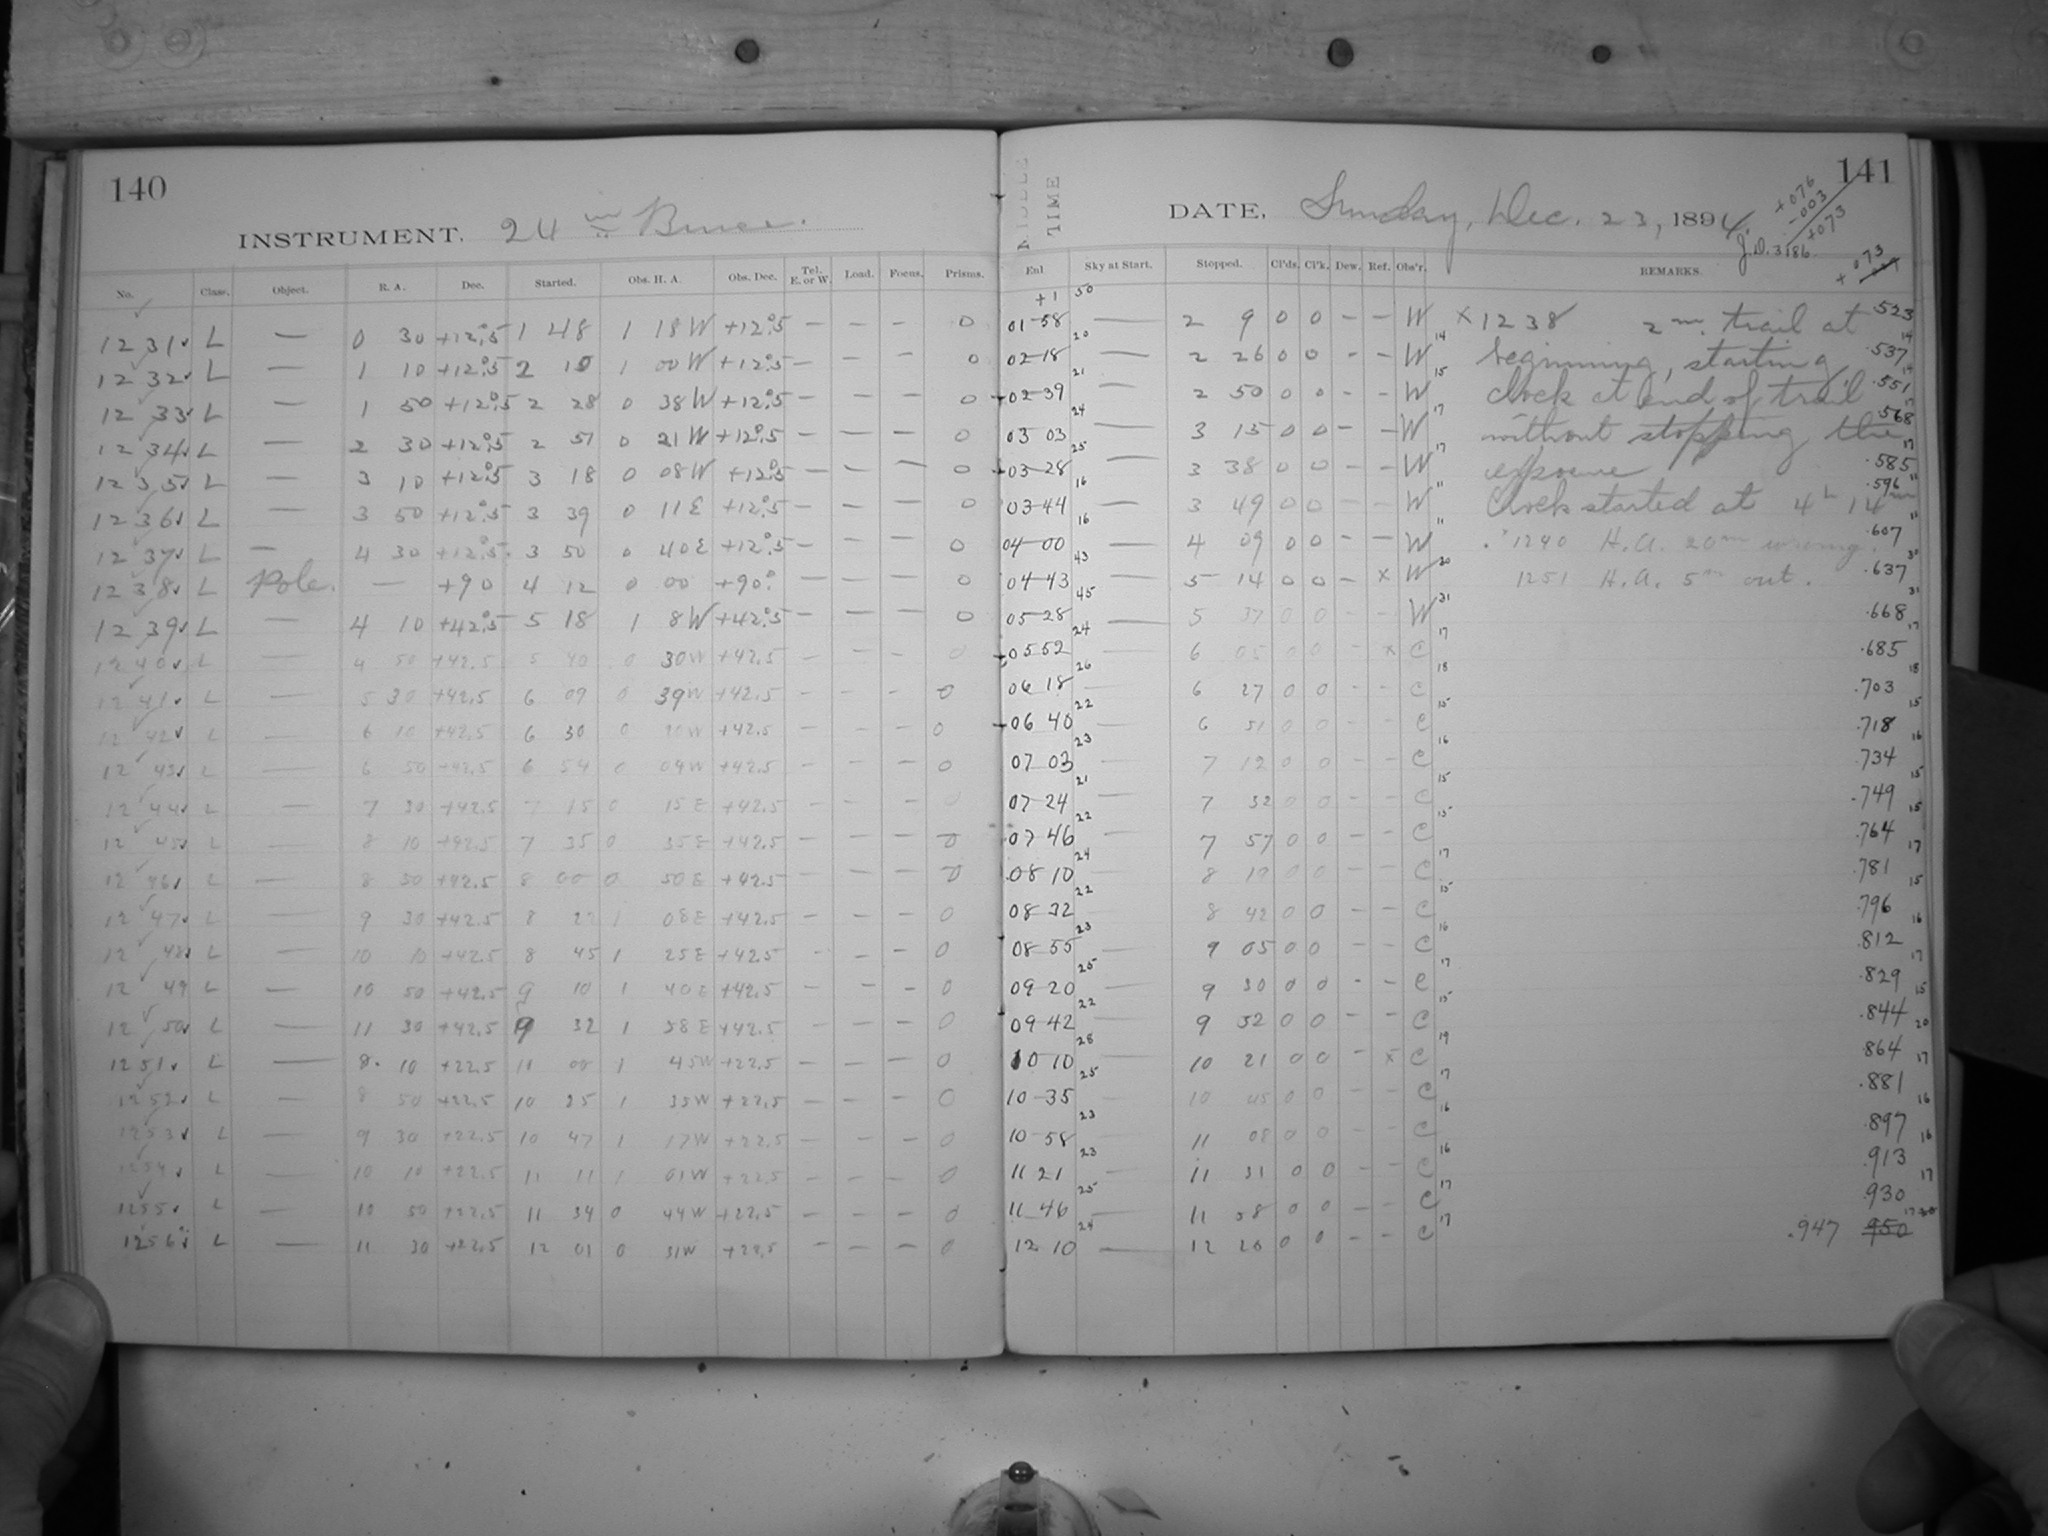 140
INSTRUMENT. 24 in Bruce.
No. Class. Object. R. A. Dec. Started. Obs. H. A. Obs. Dec. Tel. E. or W. Load. Focus. Prisms.
1231 L — 0 30 +12°.5 1 48 1 18 W +12°.5 — — — 0
1232 L — 1 10 +12°.5 2 10 1 00 W +12°.5 — — — 0
1233 L — 1 50 +12°.5 2 28 0 38 W +12°.5 — — — 0
1234 L — 2 30 +12°.5 2 51 0 21 W +12°.5 — — — 0
1235 L — 3 10 +12°.5 3 18 0 08 W +12°.5 — — — 0
1236 L — 3 50 +12°.5 3 39 0 11 E +12°.5 — — — 0
1237 L — 4 30 +12°.5 3 50 0 40 E +12°.5 — — — 0
1238 L Pole. — +90 4 12 0 00 +90° — — — 0
1239 L — 4 10 +42°.5 5 18 1 8 W +42°.5 — — — 0
1240 L — 4 50 +42.5 5 40 0 30 W +42.5 — — — 0
1241 L — 5 30 +42.5 6 09 0 39 W +42.5 — — — 0
1242 L — 6 10 +42.5 6 30 0 20 W +42.5 — — — 0
1243 L — 6 50 +42.5 6 54 0 04 W +42.5 — — — 0
1244 L — 7 30 +42.5 7 15 0 15 E +42.5 — — — 0
1245 L — 8 10 +42.5 7 35 0 35 E +42.5 — — — 0
1246 L — 8 50 +42.5 8 00 0 50 E +42.5 — — — 0
1247 L — 9 30 +42.5 8 22 1 08 E +42.5 — — — 0
1248 L — 10 10 +42.5 8 45 1 25 E +42.5 — — — 0
1249 L — 10 50 +42.5 9 10 1 40 E +42.5 — — — 0
1250 L — 11 30 +42.5 9 32 1 58 E +42.5 — — — 0
1251 L — 8 10 +22.5 1 45 W +22.5 — — — 0
1252 L — 8 50 +22.5 10 25 1 35 W +22.5 — — — 0
1253 L — 9 30 +22.5 10 47 1 17 W +22.5 — — — 0
1254 L — 10 10 +22.5 11 11 1 01 W +22.5 — — — 0
1255 L — 10 50 +22.5 11 34 0 44 W +22.5 — — — 0
1256 L — 11 30 +22.5 12 01 0 31 W +22.5 — — — 0
141
MIDDLE TIME
DATE, Sunday, Dec. 23, 1894.
+076
-003
+073
J.D. 3186
+.073
End Sky at Start. Stopped. Cl'ds. Cl'k. Dew. Ref. Obs'r. REMARKS.
+1 50
01 58 — 2 9 0 0 — — W × 1238 2m. trail at .523
20 14 14
02 18 — 2 26 0 0 — — W beginning, starting .537
21 15 14
02 39 — 2 50 0 0 — — W clock at end of trail .551
24 17 17
03 03 — 3 15 0 0 — — W without stopping the .568
25 17 17
03 28 — 3 38 0 0 — — W exposure .585
16 11 11
03 44 — 3 49 0 0 — — W Clock started at 4h 14m .596
16 11 11
04 00 — 4 09 0 0 — — W 1240 H.A. 20m wrong. .607
43 30 30
04 43 — 5 14 0 0 — × W 1251 H.A. 5m out. .637
45 31 31
05 28 — 5 37 0 0 — — W .668
24 17 17
05 52 — 6 05 0 0 — × C .685
26 18 18
06 18 — 6 27 0 0 — — C .703
22 15 15
06 40 — 6 51 0 0 — — C .718
23 16 16
07 03 — 7 12 0 0 — — C .734
21 15 15
07 24 — 7 32 0 0 — — C .749
22 15 15
07 46 — 7 57 0 0 — — C .764
24 17 17
08 10 — 8 19 0 0 — — C .781
22 15 15
08 32 — 8 42 0 0 — — C .796
23 16 16
08 55 — 9 05 0 0 — — C .812
25 17 17
09 20 — 9 30 0 0 — — C .829
22 15 15
09 42 — 9 52 0 0 — — C .844
28 19 20
10 10 — 10 21 0 0 — × C .864
25 17 17
10 35 — 10 45 0 0 — — C .881
23 16 16
10 58 — 11 08 0 0 — — C .897
23 16 16
11 21 — 11 31 0 0 — — C .913
25 17 17
11 46 — 11 58 0 0 — — C .930
24 17 17
12 10 — 12 20 0 0 — — C .947 950